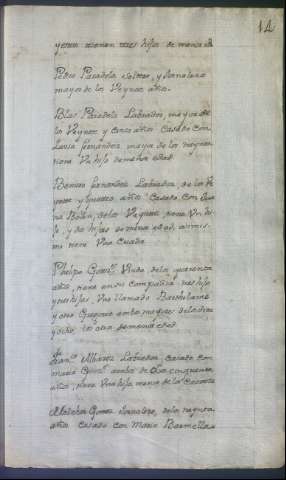 14
yerno tienen tres hijos de menor ed.
Pedro Paradela soltero, y Jornalero
mayor de los Veynte años.
Blas Paradela Labrador, mayor de
los Veynte y cinco años Casado con
Lucia Fernandez mayor de los treynta
tiene Un hijo de menor edad
Benito Fernandez Labrador, de los Ve
ynte y quatro años Casado con
na de los Veynte, tiene Un hi
jo, y dos hijas de menor edad, asimis
mo tiene Una Cuada
Phelipe Gonz.z Viudo de los quarenta
años, tiene en su Compañia tres hijos
y tres hijas, Uno llamado Bartholome
y otro Gregorio ambos mayores de los diez
y ocho, los otros de menor edad
Fran.co Alvarez Labrador, casado con
Maria ambos de cinquenta
años, tiene Una hija menor de los Catorce
Gomez Jornalero, de los treynta
años Casado con Maria